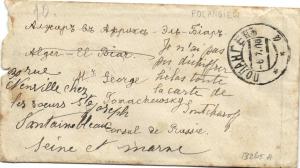 POLANGIE
Алжиръ въ Африкѣ Эль-Біаръ
Alger-El Biar
Je n'ai pas
pu déchiffrer
ПОЛАНГЕНЪ
rue
Mr George
hélas toute
chez
Tomachewsky
la carte de
les soeurs St Joseph
Gontcharoff
Fontainebleau
Consul de Russie
Seine et Marne